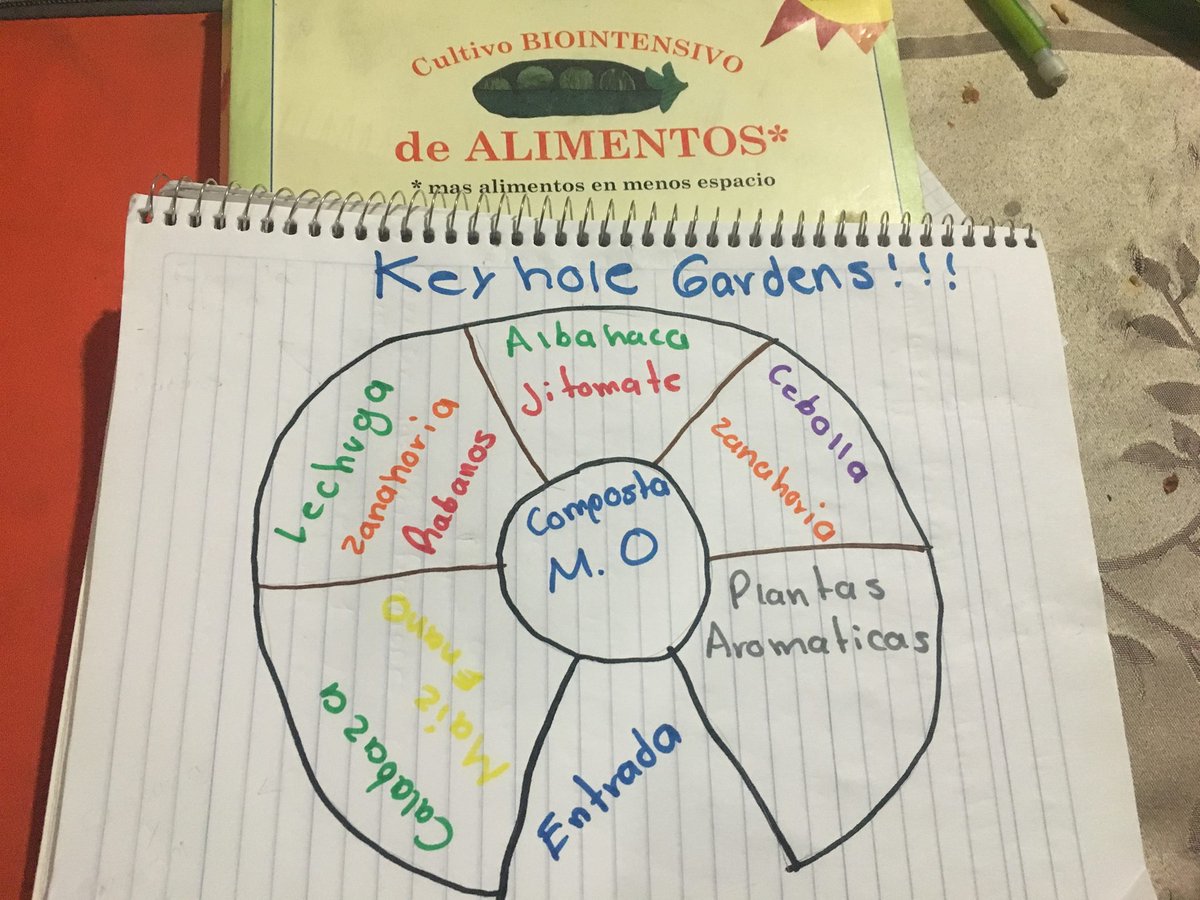 Cultivo BIOINTENSIVO
de ALIMENTOS*
* mas alimentos en menos espacio
Keyhole Gardens!!!
Albahaca
Jitomate
Cebolla
zanahoria
Lechuga
zanahoria
Rabanos
Composta
M.O
Plantas
Aromaticas
Maiz Enano
Calabaza
Entrada